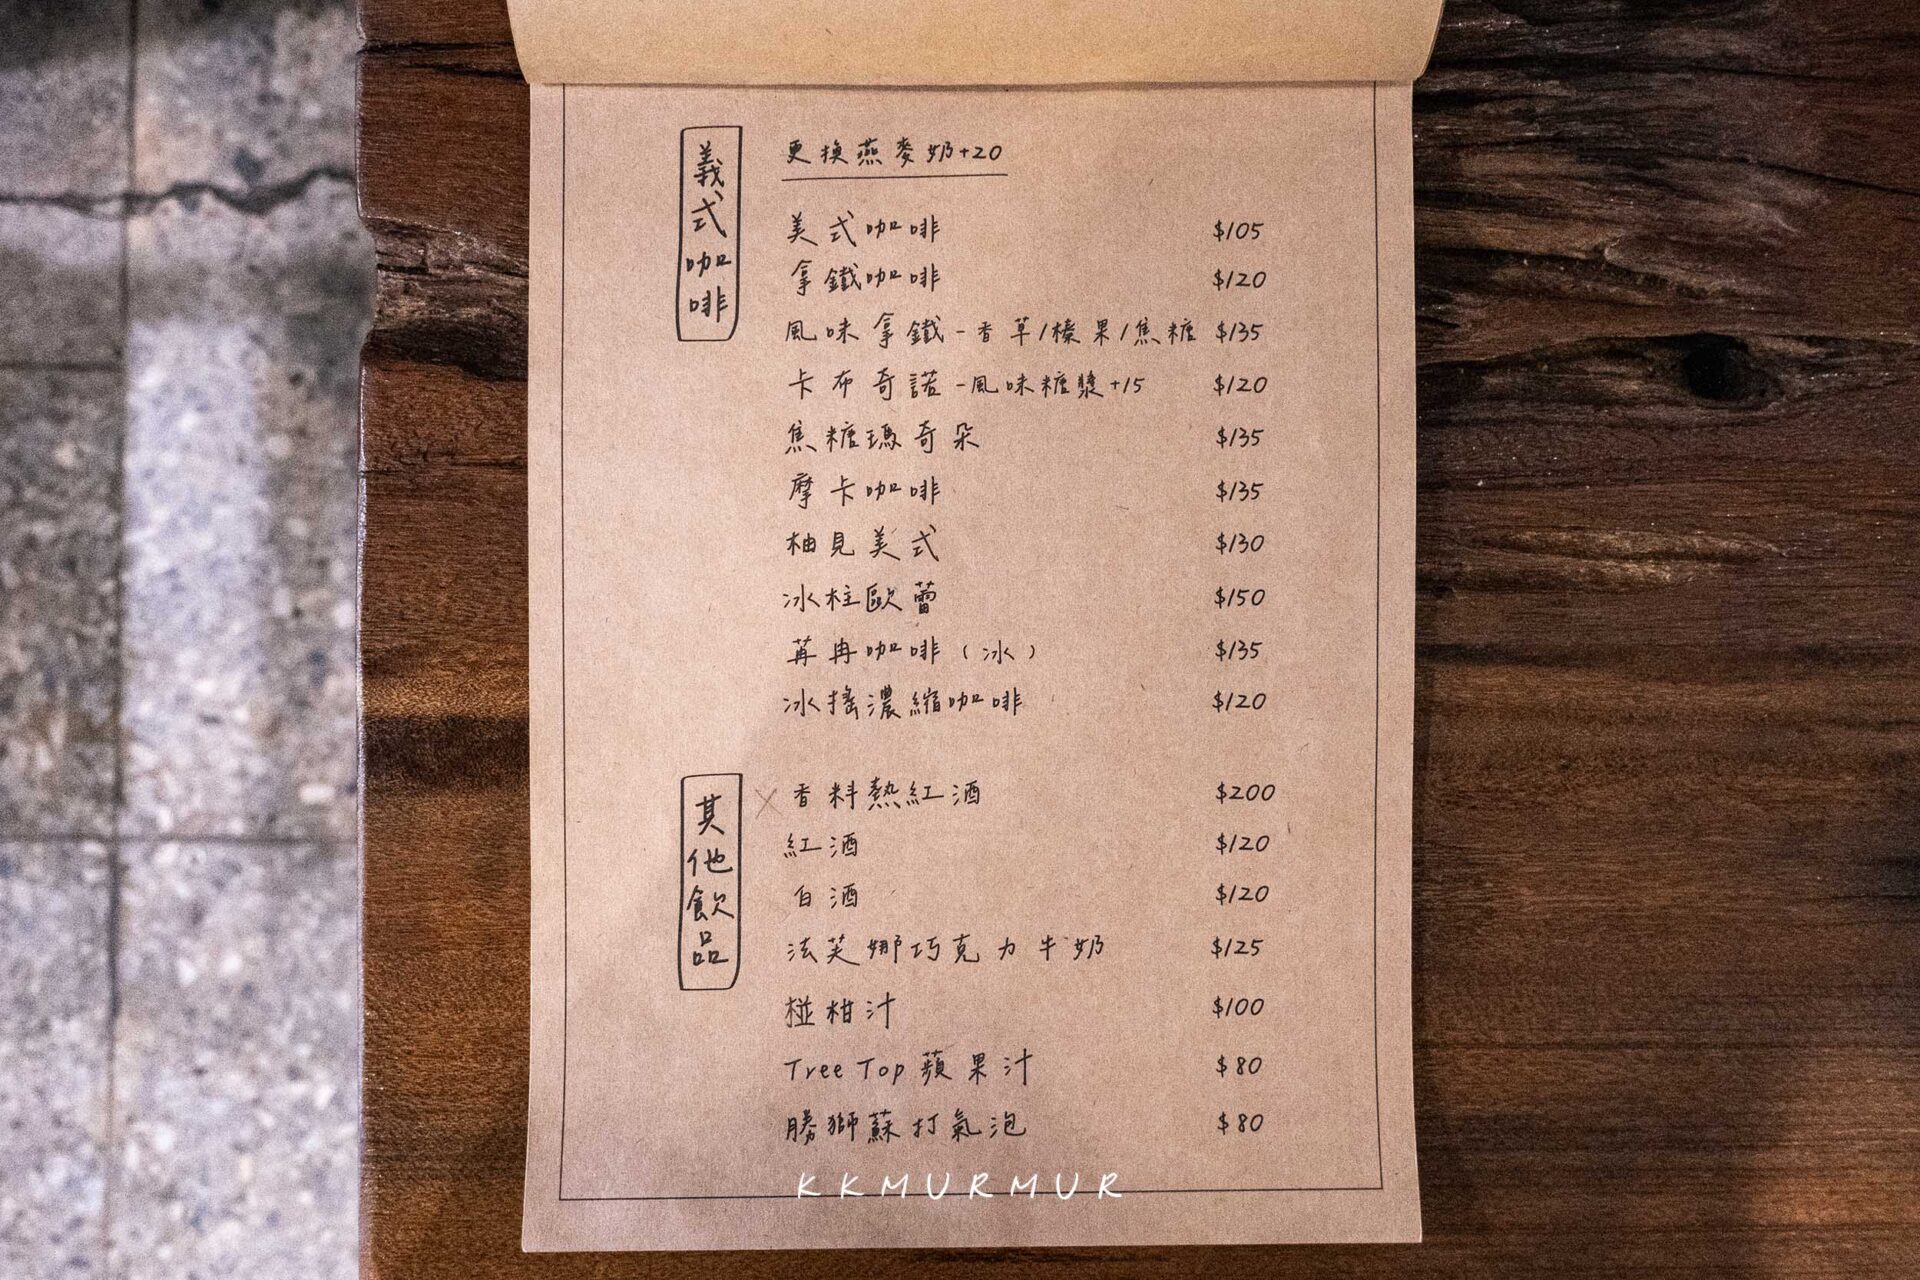 義式咖啡
更換燕麥奶+20
美式咖啡 $105
拿鐵咖啡 $120
風味拿鐵-香草/榛果/焦糖 $135
卡布奇諾-風味糖漿+15 $120
焦糖瑪奇朵 $135
摩卡咖啡 $135
柚見美式 $130
冰柱歐蕾 $150
苒冉咖啡(冰) $135
冰搖濃縮咖啡 $120
其他飲品
香料熱紅酒 $200
紅酒 $120
白酒 $120
法芙娜巧克力牛奶 $125
椪柑汁 $100
Tree Top蘋果汁 $80
勝獅蘇打氣泡 $80
KKMURMUR